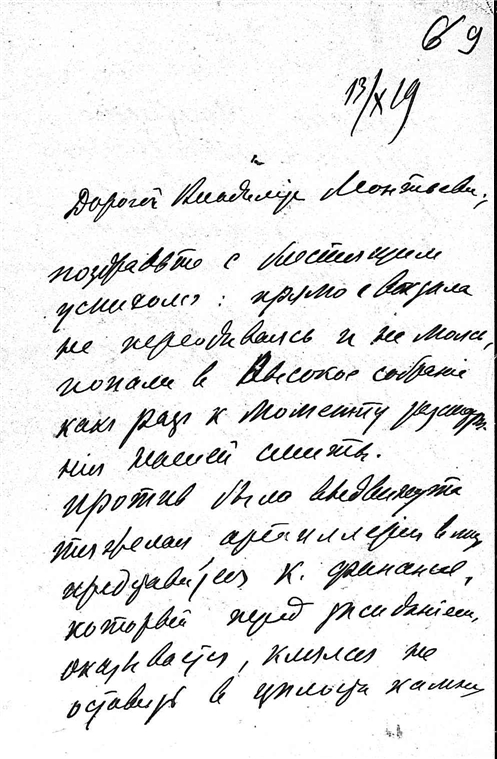 69
13/X 19
Дорогой Владимiръ Леонтьевич,
поздравьте с блестящим
успехомъ: прямо с вокзала
не переодеваясь и не моясь,
попали в Высокое собранiе
какъ разъ к моменту разсмотре-
нiя нашей сметы.
Против была выдвинута
тяжелая артиллерiя в лице
представителя К. финансов,
который перед заседанiем,
оказывается, клялся не
оставить в целости камня